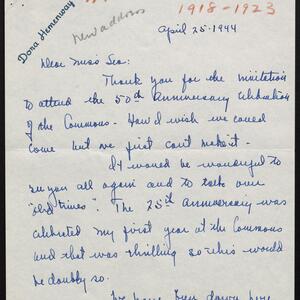 Dona Hemenway
new address
1918-1923
April 25-1944
Dear Miss Sea:
Thank you for the invitation
to attend the 50th Anniversary Celebration
of the Commons. How I wish we could
come but we just can't make it.
It would be wonderful to
see you all again and to talk over
"old times". The 25th Anniversary was
celebrated my first year at the Commons
and that was thrilling so this would
be doubly so.
We have been down here